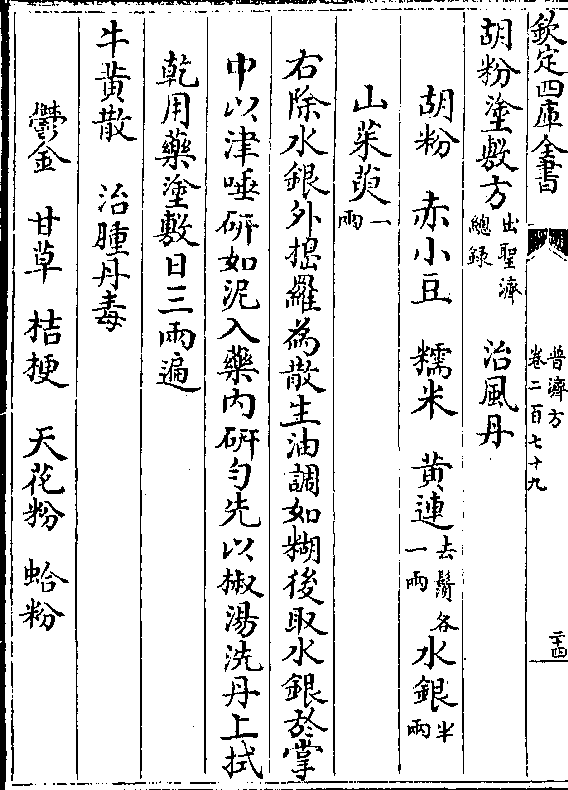 欽定四庫全書
普濟方
卷二百七十九
二十四
胡粉塗敷方出聖濟總録 治風丹
胡粉 赤小豆 糯米 黄連去鬚各一兩 水銀半兩
山茱萸一兩
右除水銀外搗羅為散生油調如糊後取水銀於掌
中以津唾研如泥入藥内研匀先以椒湯洗丹上拭
乾用藥塗敷日三兩遍
牛黄散 治腫丹毒
鬱金 甘草 桔梗 天花粉 蛤粉